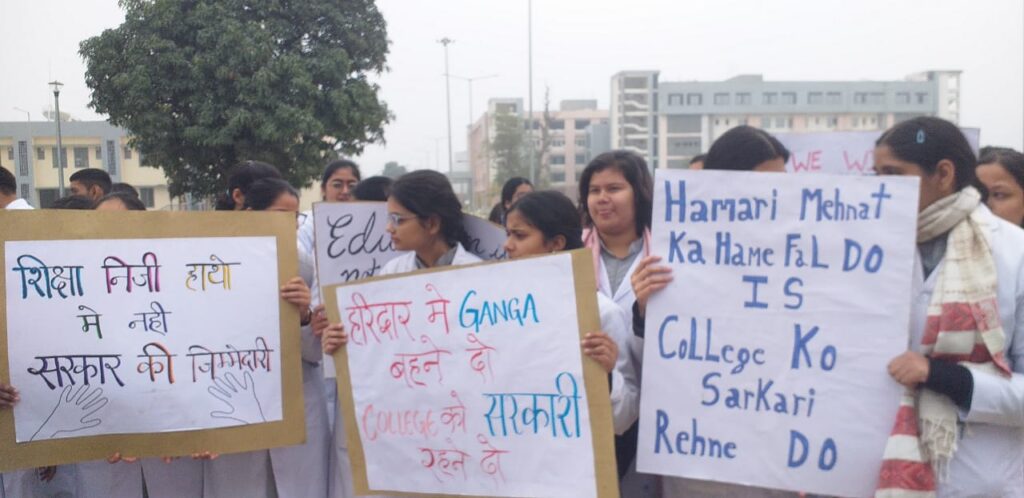 शिक्षा निजी हाथो
मे नही
सरकार की जिम्मेदारी
Edu
not
हरिद्वार मे GANGA
बहने दो
COLLEGE को सरकारी
रहने दो
WE W
Hamari Mehnat
Ka Hame FaL DO
IS
CoLLege Ko
Sarkari
Rehne DO